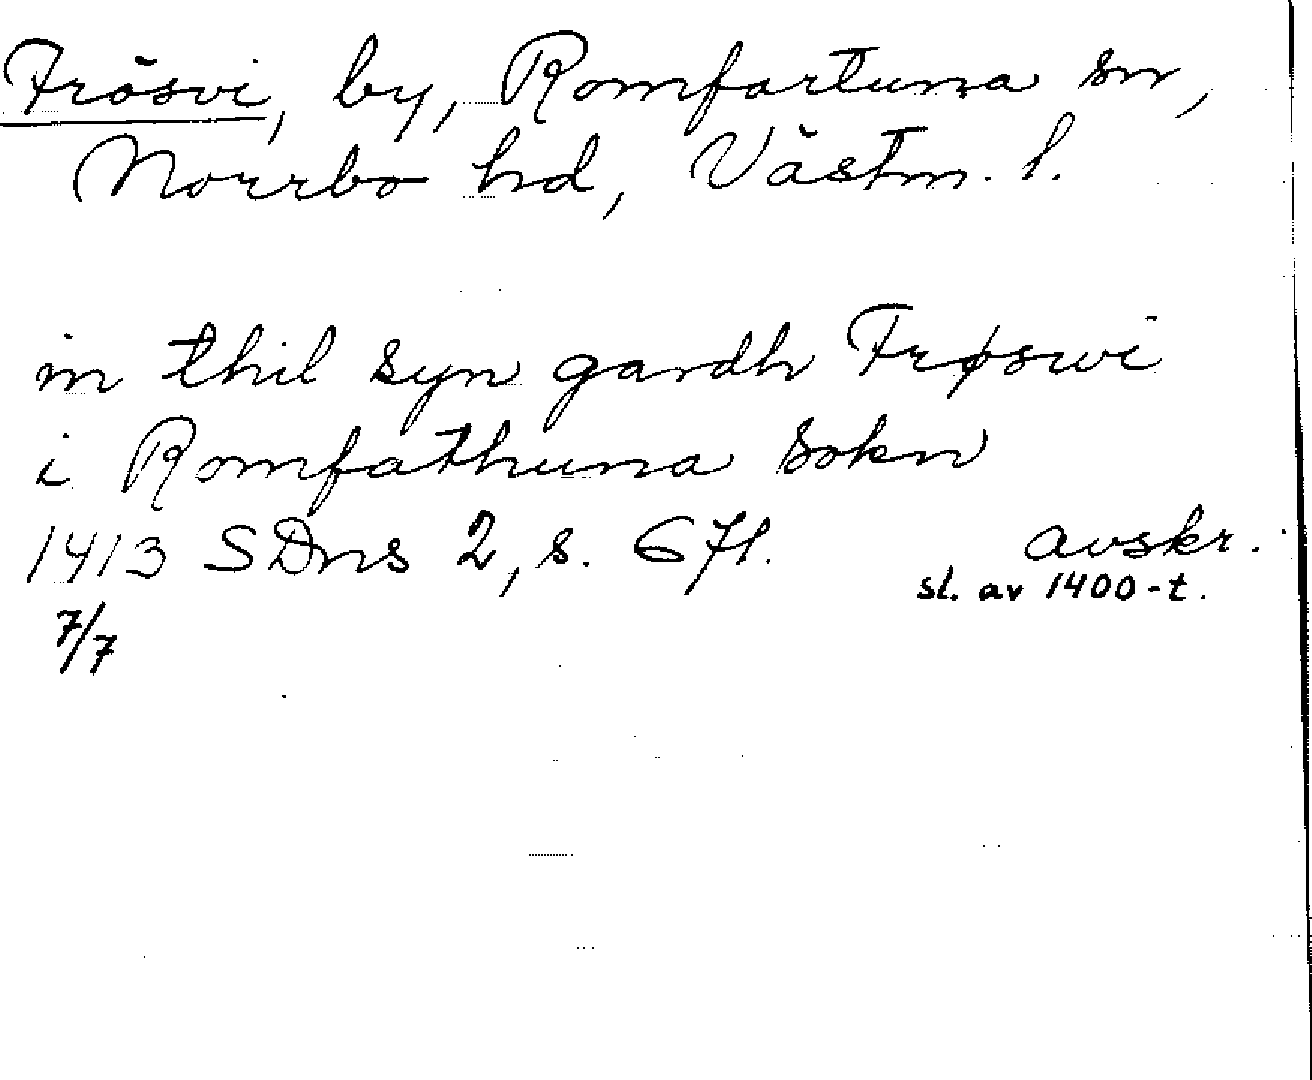 Frösvi, by, Romfartuna sn,
Norrbo hd, Västm. l.
in thil syn gardh Frøswi
i Romfathuna sokn
1413 SDns 2, s. 671. avskr.
sl. av 1400-t.
7/7